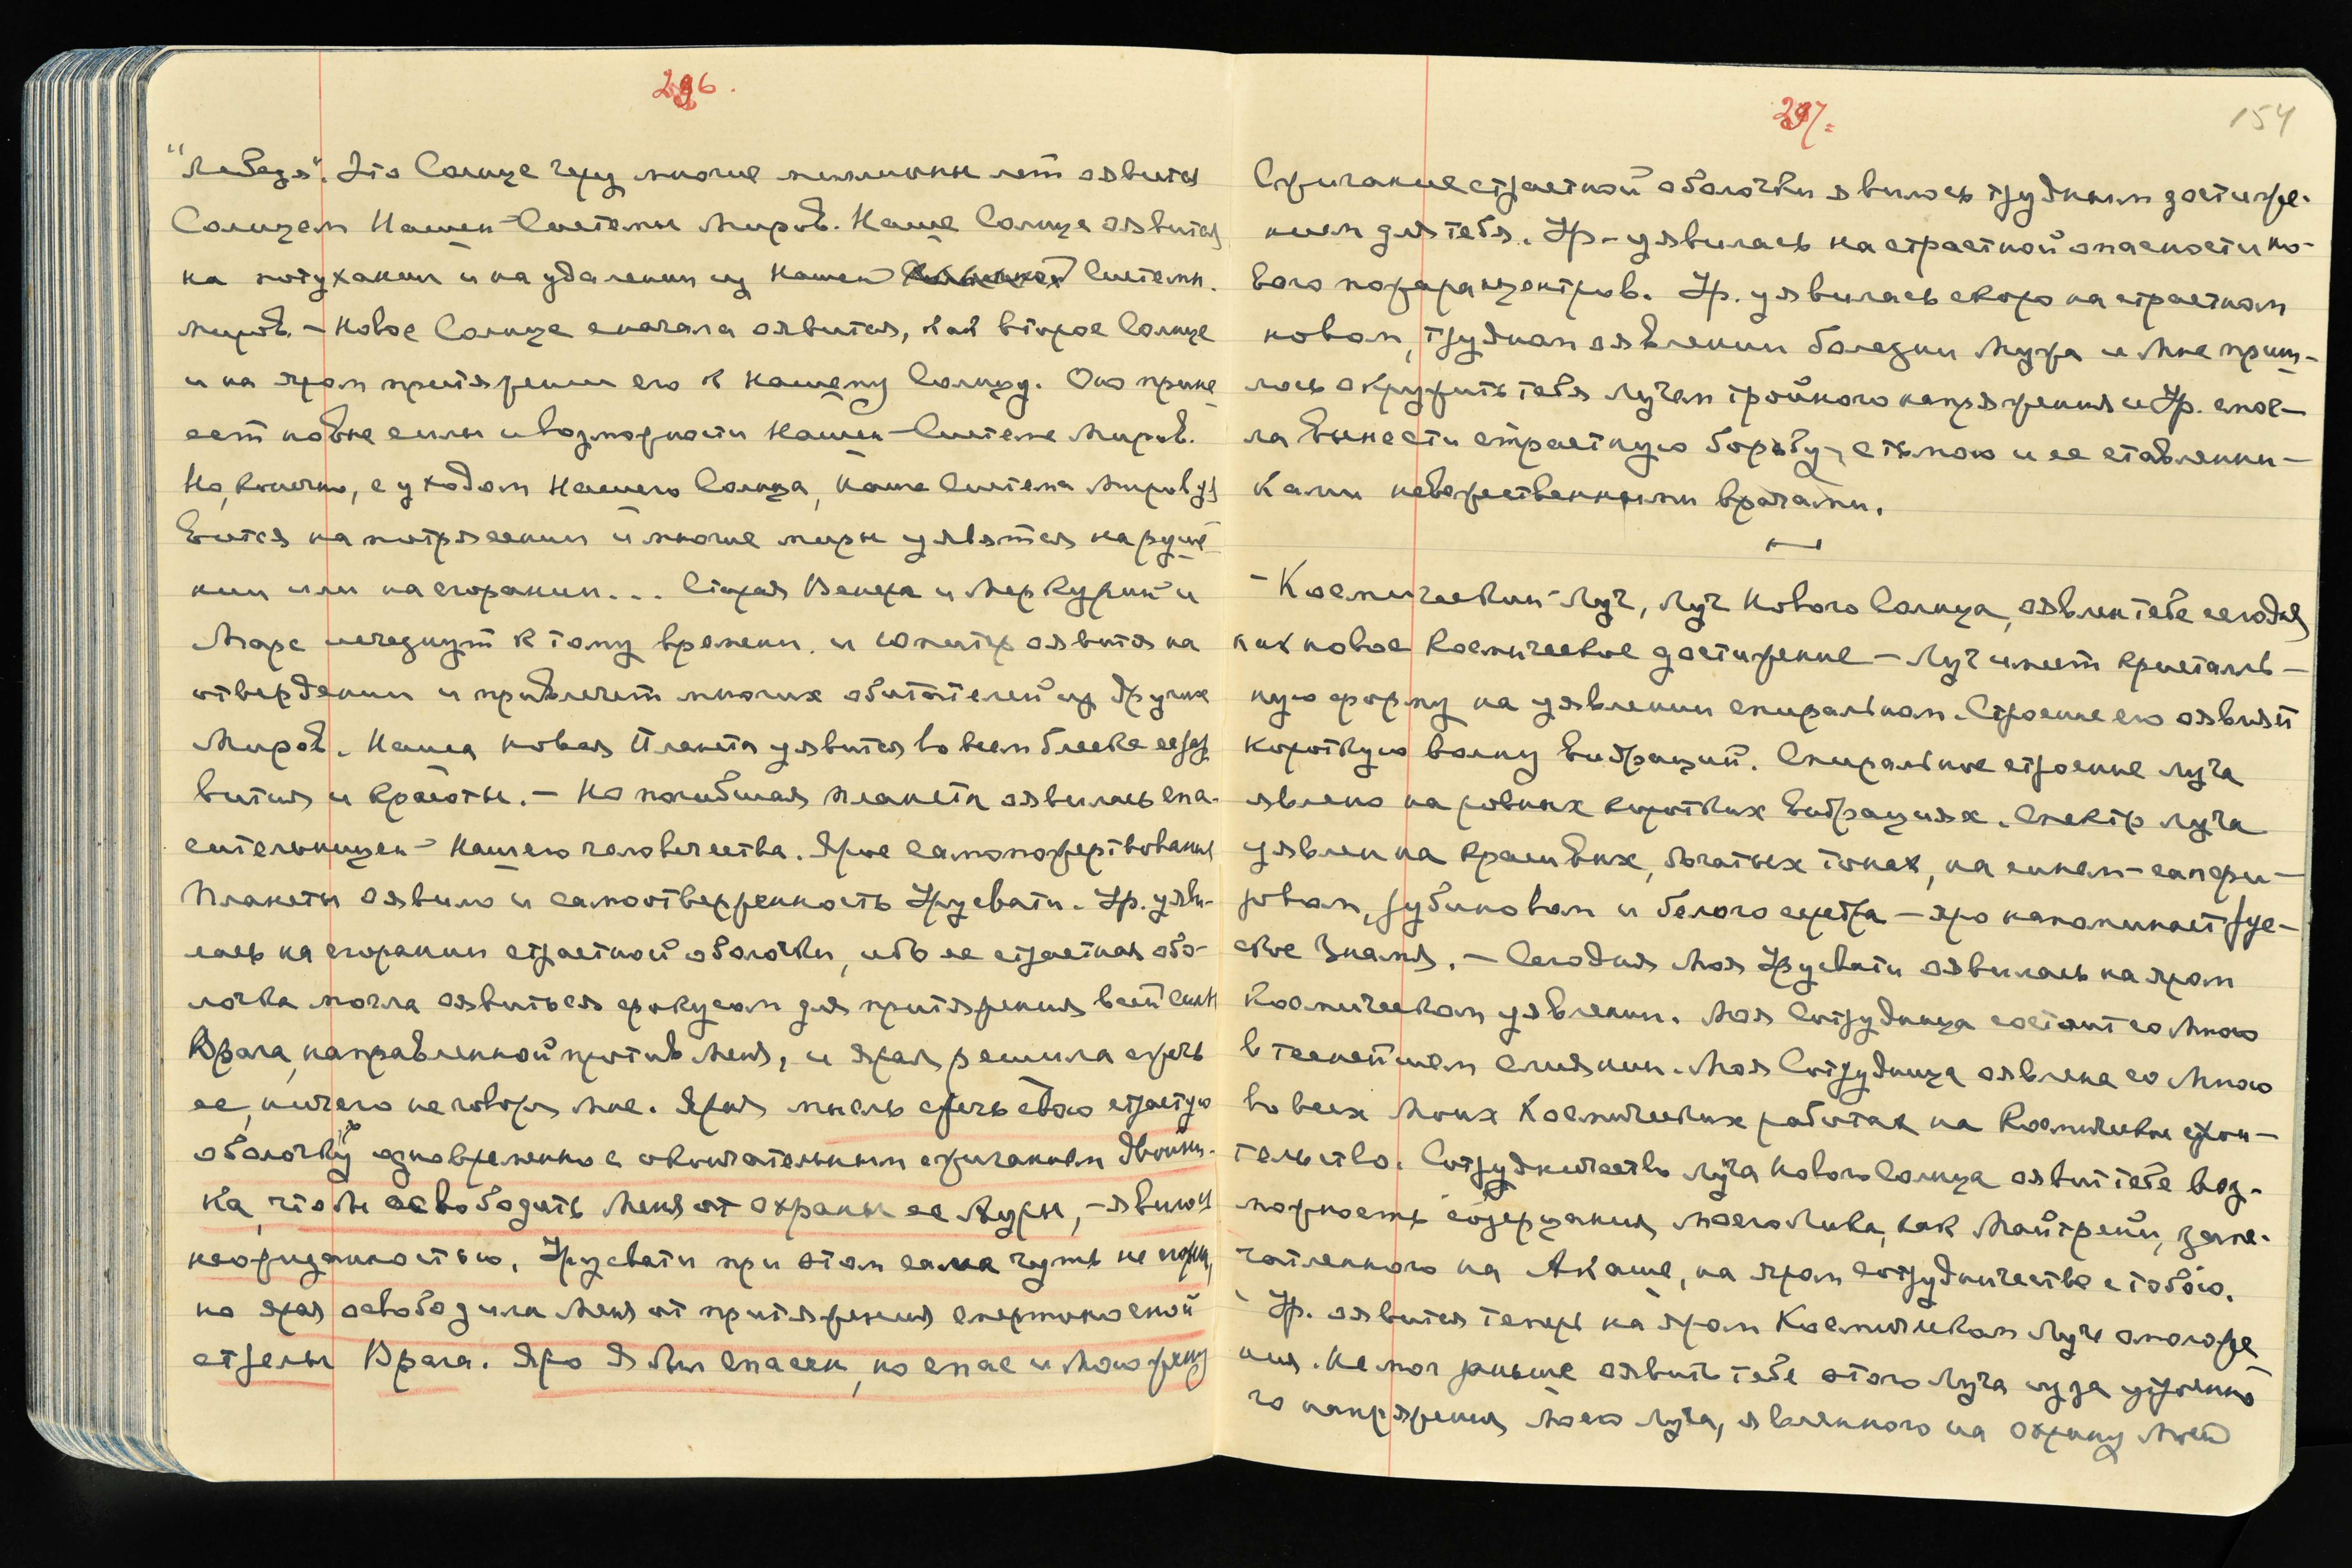 296.
"Лебедя". Это Солнце через многие миллионы лет оявится
Солнцем Нашей Системы Миров. Наше Солнце оявится
на потухании и на удалении из Нашей Системы
Миров. – Новое Солнце сначала оявится, как второе Солнце
и на яром притяжении его к нашему Солнцу. Оно прине
сет новые силы и возможности Нашей Системе Миров.
Но, конечно, с уходом Нашего Солнца, наша Система Миров уя
вится на потрясении и многие миры уявятся на руше
нии или на сгорании... Старая Венера и Меркурий и
Марс исчезнут к тому времени и Юпитер оявится на
отвердении и привлечет многих обитателей из других
Миров. Наша новая Планета уявится во всем блеске ее раз
вития и красоты. – Но погибшая планета оявилась спа-
сительницей Нашего человечества. Ярое самопожертвование
Планеты оявило и самоотверженность Урусвати. Ур. уяви-
лась на сгорании страстной оболочки, ибо ее страстная обо-
лочка могла оявиться фокусом для притяжения всей силы
Врага, направленной против Меня, и ярая решила сжечь
ее, ничего не говоря Мне. Ярая мысль сжечь свою страстную
оболочку одновременно с окончательным сжиганием двойни-
ка, чтобы освободить Меня от охраны ее Ауры, – явилась
неожиданностью. Урусвати при этом сама чуть не сгорела,
но ярая освободила Меня от притяжения смертоносной
стрелы Врага. Яро Я был спасен, но спас и Мою жену
297.
154
Сжигание страстной оболочки явилось трудным достиже-
нием для тебя. Ур. уявилась на страстной опасности но-
вого пожара центров. Ур. уявилась скоро на страстном
новом, трудном оявлении болезни Мужа и Мне приш-
лось окружить тебя Лучем тройного напряжения и Ур. смог-
ла вынести страстную борьбу с тьмою и ее ставленни-
ками невежественными врачами.
– Космический Луч, Луч Нового Солнца, оявлен тебе сегодня
как новое Космическое достижение – Луч имеет кристаль-
ную форму на уявлении спиральном. Строение его оявляет
короткую волну вибраций. Спиральное строение луча
явлено на ровных коротких вибрациях. Спектр луча
уявлен на красивых, богатых тонах, на синем-сапфи-
ровом, рубиновом и белого серебра – яро напоминает рус-
ское Знамя. – Сегодня Моя Урусвати оявилась на яром
Космическом уявлении. Моя Сотрудница состоит со Мною
в теснейшем слиянии. Моя Сотрудница оявлена со Мною
во всех Моих Космических работах на Космическое строи-
тельство. Сотрудничество луча Нового Солнца оявит тебе воз-
можность созерцания Моего Лика, как Майтрейи, запе-
чатленного на Акаше, на яром сотрудничестве с тобою.
Ур. оявится теперь на яром Космическом Луче омоложе
ния. Не мог раньше оявить тебе этого Луча из за утроенно
го напряжения Моего Луча, явленного на охрану Моей